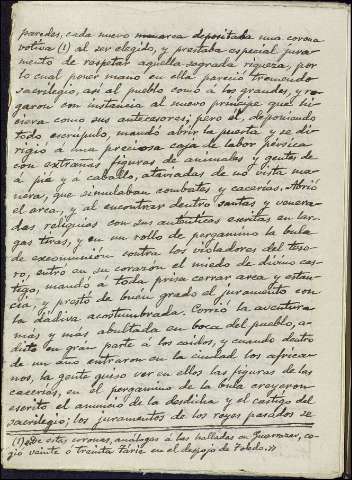 paredes, cada nuevo monarca depositaba una corona
votiva (1) al ser elegido, y prestaba especial jura-
mento de respetar aquella sagrada riqueza, por
lo cual poner mano en ella pareció tremendo
sacrilegio, así al pueblo como á los grandes, y ro-
garon con instancia al nuevo príncipe que hi-
ciera como sus antecesores; pero él, deponiendo
todo escrúpulo, mandó abrir la puerta y se di-
rigió á una preciosa caja de labor pérsica
con extrañas figuras de animales y gentes de
á pié y á caballo, ataviadas de no vista ma-
nera, que simulaban combates y cacerías. Abrió
el arca, y al encontrar dentro santas y venera-
das reliquias con sus auténticas escritas en lar-
gas tiras, y en un rollo de pergamino la bula
de excomunión contra los violadores del teso-
ro, entró en su corazón el miedo de divino cas-
tigo, mandó á toda prisa cerrar arca y estan-
cia, y prestó de buen grado el juramento con
la dádiva acostumbrada. Corrió la aventura
más y más abultada en boca del pueblo, a-
dicto en gran parte á los caídos, y cuando dentro
de un año entraron en la ciudad los africa-
nos, la gente quiso ver en ellos las figuras de las
cacerías, en el pergamino de la bula creyeron
escrito el anuncio de la desdicha y el castigo del
sacrilegio; los juramentos de los reyes pasados se
(1) «De estas coronas, análogas á las halladas en Guarrazar, co-
gió veinte ó treinta Táric en el despojo de Toledo.»